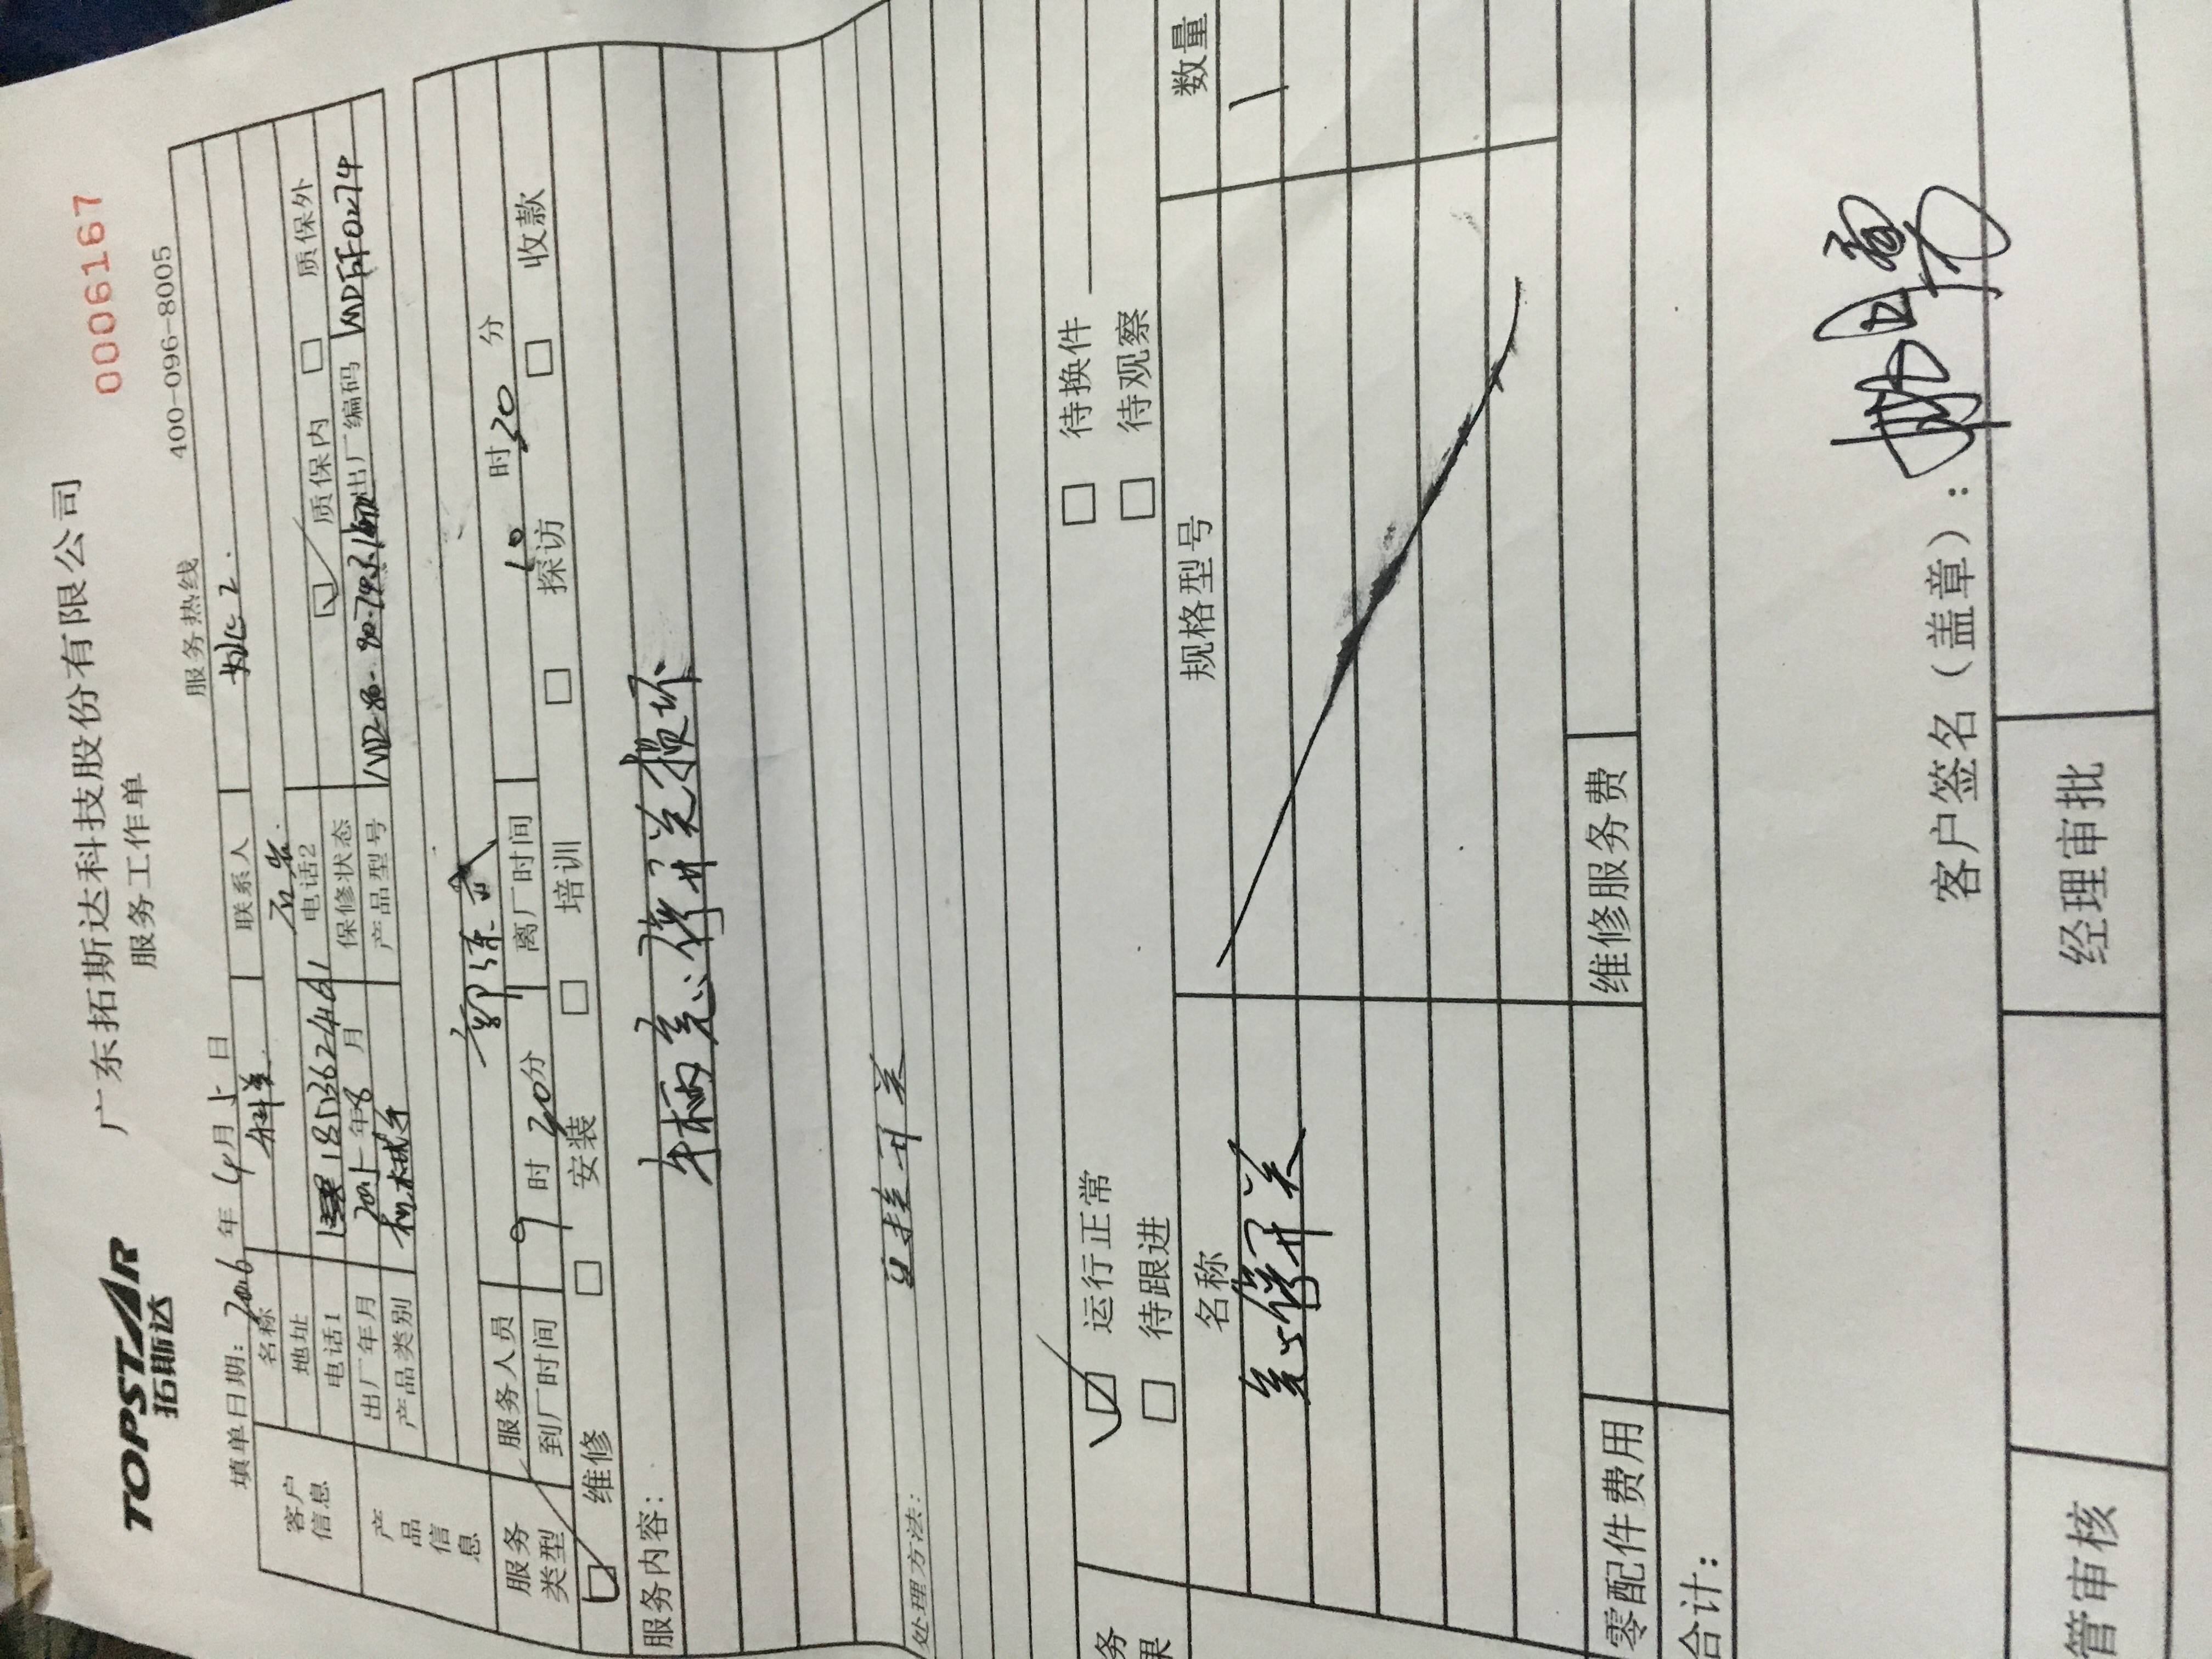 TOPSTAR
拓斯达
广东拓斯达科技股份有限公司
0006167
服务工作单
服务热线 400-096-8005
填单日期：2016年4月5日
客户信息
名称 科 联系人
地址 石岩
电话1 电话2
产品信息
出厂年月 2015年8月 保修状态 质保内 质保外
产品类别 机械手 产品型号 出厂编码
服务类型
服务人员 郭
到厂时间 9时30分 离厂时间 10时30分
维修 安装 培训 探访 收款
服务内容：
手柄 急停开关损坏
处理方法：
更换开关
务果
运行正常 待换件
待跟进 待观察
名称 规格型号 数量
急停开关 1
零配件费用 维修服务费
合计：
客户签名（盖章）：
管审核 经理审批